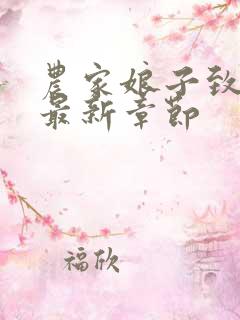 農家娘子致
最新章節
福欣